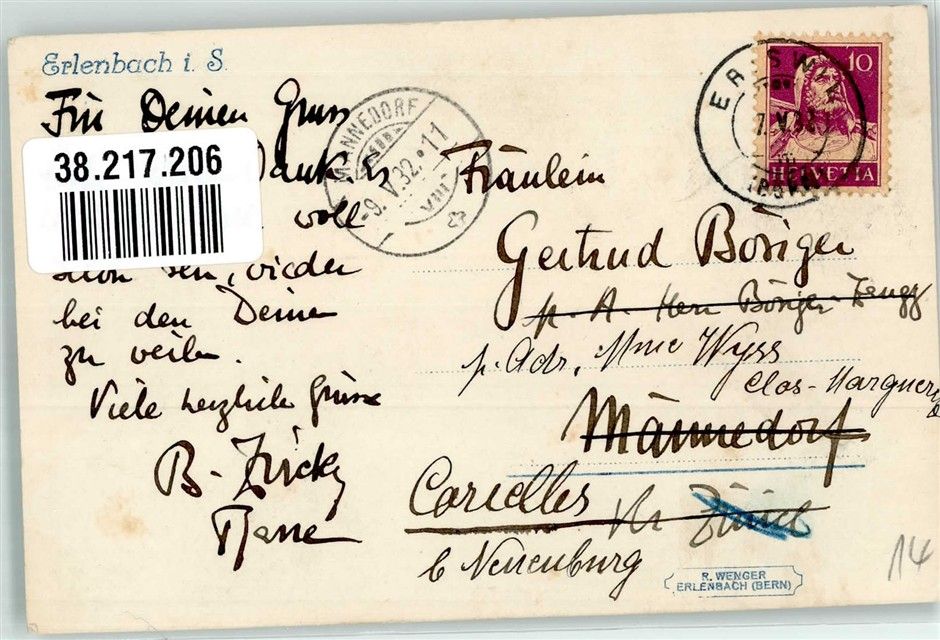 Erlenbach i. S.
Für Deinen Gruss
38.217.206
Dank. Es
voll
schon sein, wieder
bei den Deinen
zu weilen.
Viele herzliche Grüsse
B.
MÄNNEDORF
-9.V.32.-11
VIII
10
HELVETIA
7.V.32
(BERN)
Fräulein
Gertrud Bösiger
p. A. Herr Bösiger-Zaugg
p. Adr. Mme Wyss
Clos-Marguerite
Männedorf
Corcelles Kt. Zürich
b Neuenburg
R. WENGER
ERLENBACH (BERN)
14